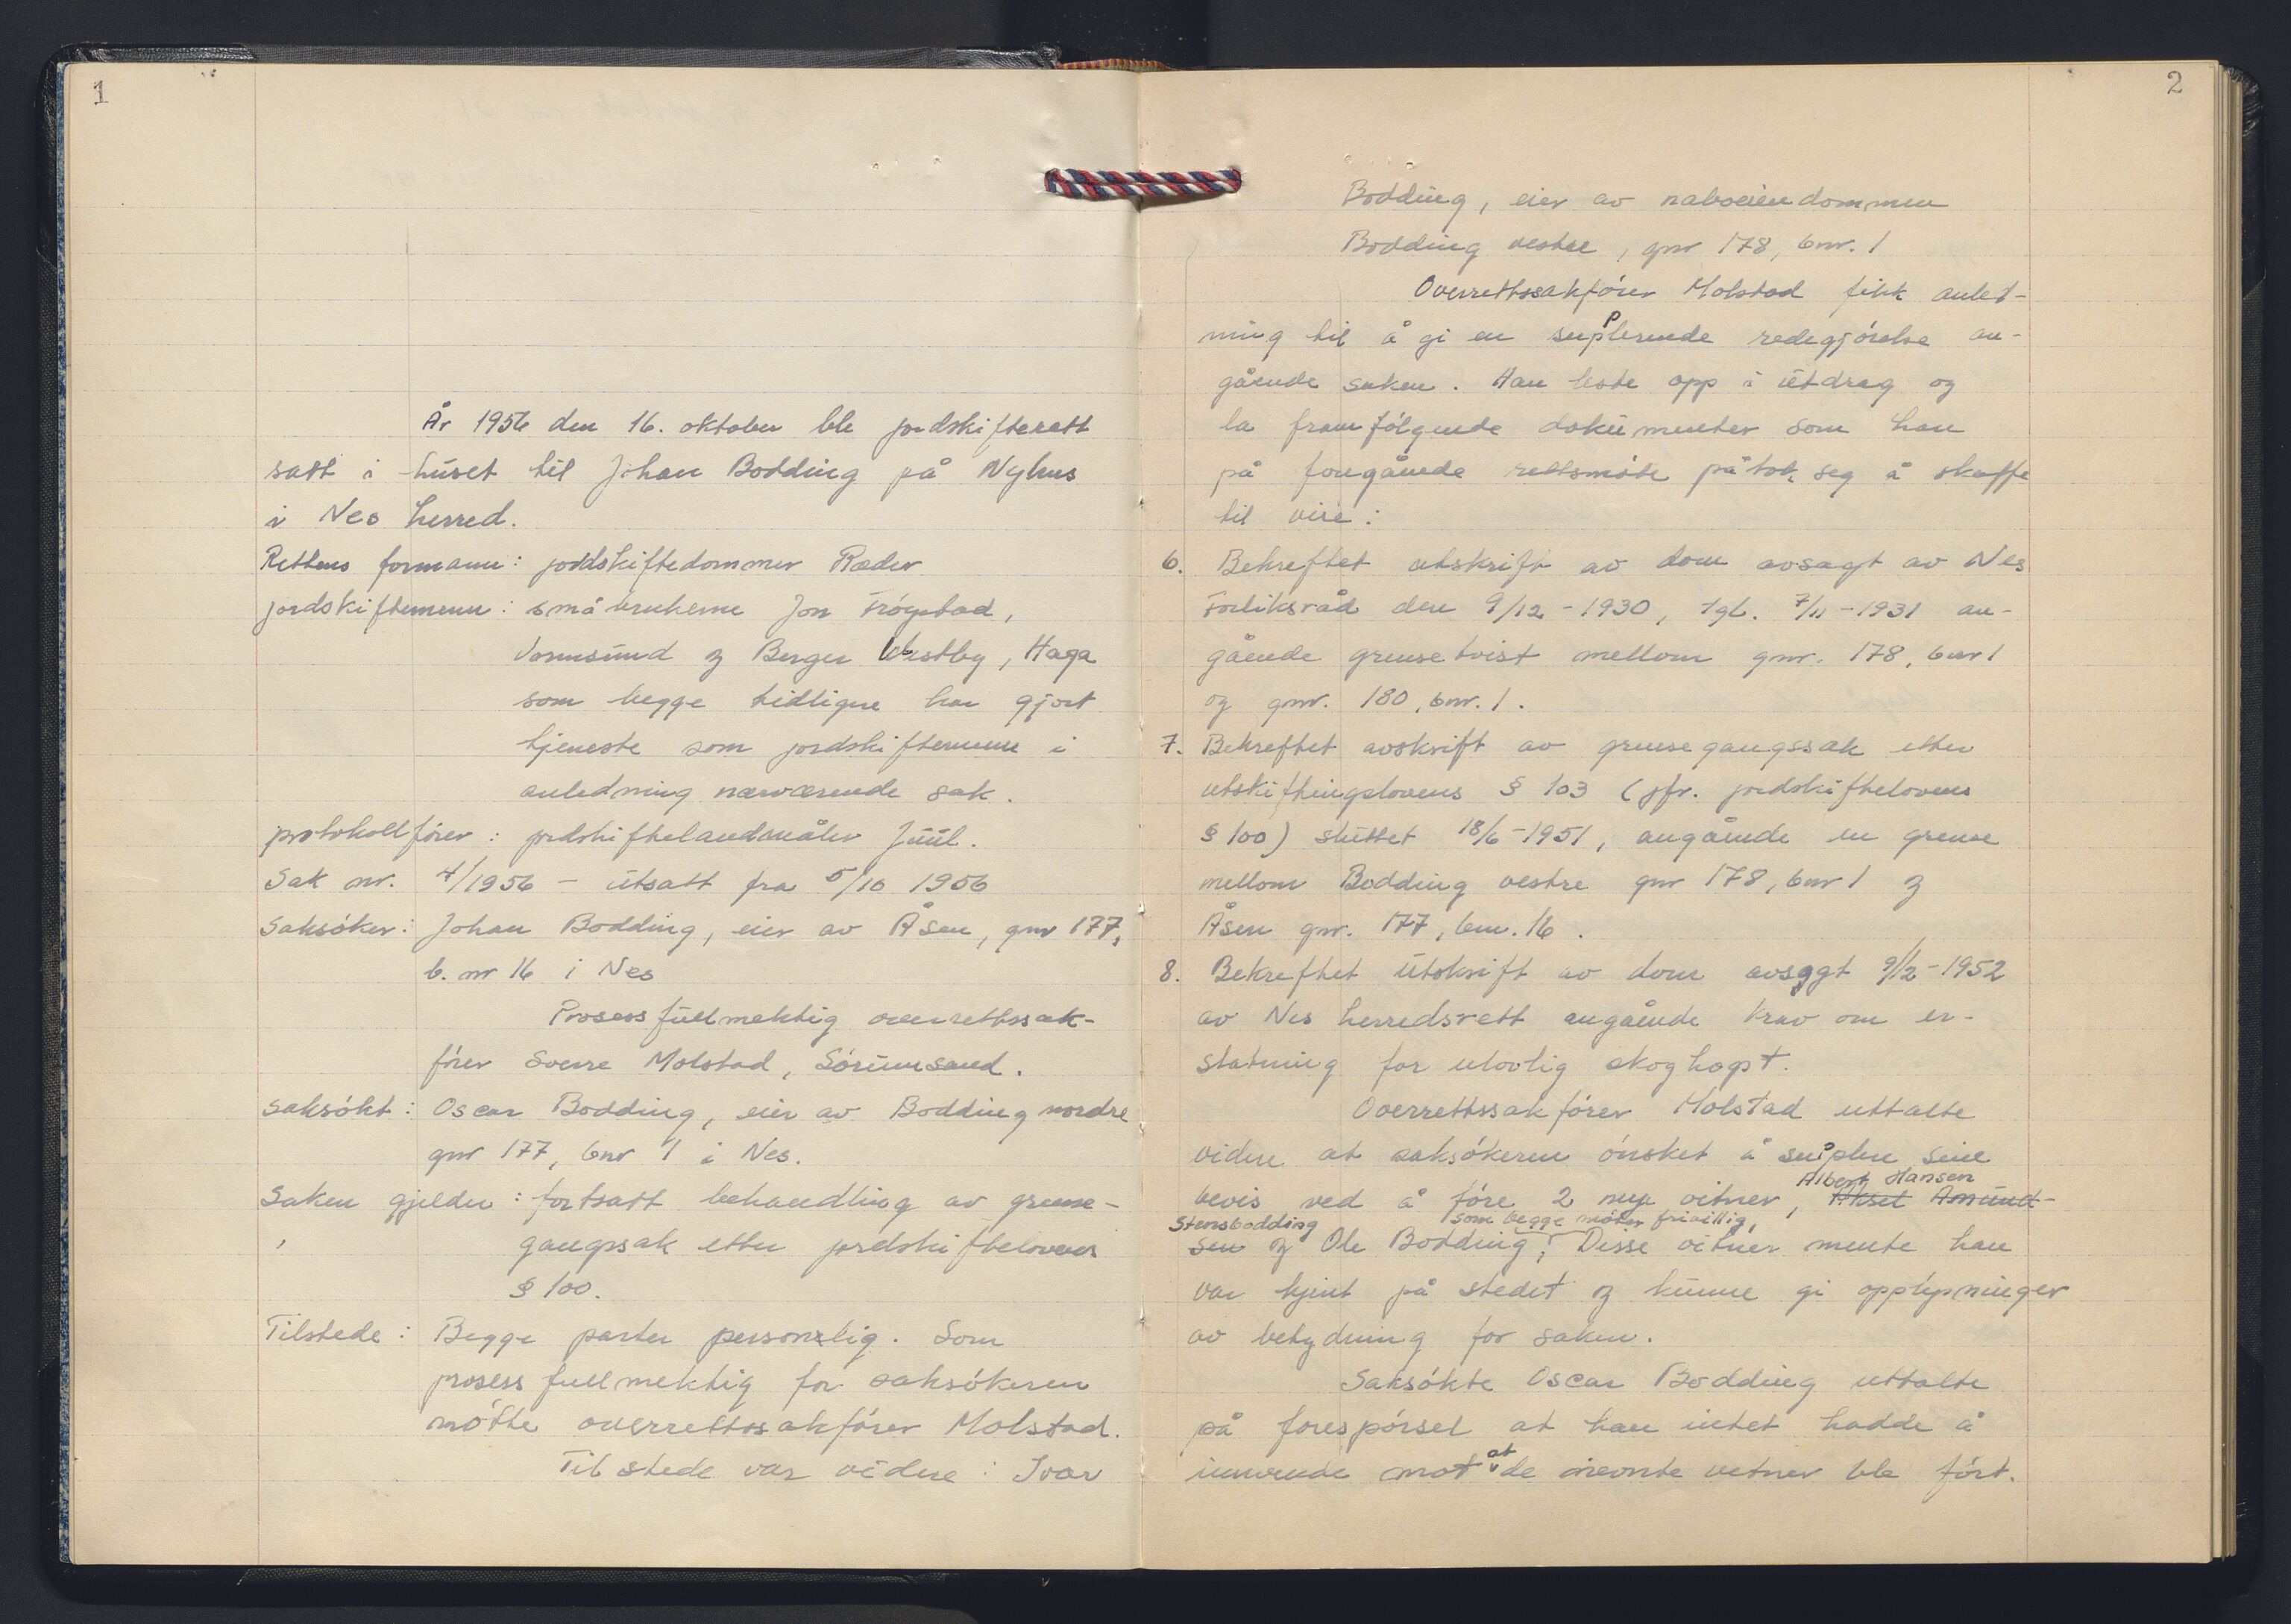 1
År 1956 den 16. oktober ble jordskifterett
satt i huset til Johan Bodding på Nyhus
i Nes herred.
Rettens formann: jordskiftedommer Ræder
jordskiftemenn: småbrukerne Jon Frogstad,
Vormsund og Berger Westby, Haga
som begge tidligere har gjort
tjeneste som jordskiftemenn i
anledning nærværende sak.
protokollfører: jordskiftelandmåler Juul.
Sak nr. 4/1956 – utsatt fra 5/10 1956
Saksøker: Johan Bodding, eier av Åsen, gnr 177,
b. nr 16 i Nes
Prosessfullmektig overrettssak-
fører Sverre Molstad, Sørumsand.
saksøkt: Oscar Bodding, eier av Bodding nordre
gnr 177, bnr 1 i Nes.
Saken gjelder: fortsatt behandling av grense-
gangssak etter jordskiftelovens
§ 100.
Tilstede: Begge parter personlig. Som
prosessfullmektig for saksøkeren
møtte overrettssakfører Molstad.
Tilstede var videre: Ivar
2
Bodding, eier av naboeiendommen
Bodding vestre, gnr 178, bnr. 1
Overrettssakfører Molstad fikk anled-
ning til å gi en supplerende redegjørelse an-
gående saken. Han leste opp i utdrag og
la fram følgende dokumenter som han
på foregående rettsmøte påtok seg å skaffe
til veie:
6. Bekreftet utskrift av dom avsagt av Nes
Forliksråd den 9/12 – 1930, tgl. 7/11 – 1931 an-
gående grensetvist mellom gnr. 178, bnr 1
og gnr. 180, bnr. 1.
7. Bekreftet avskrift av grensegangssak etter
utskiftingslovens § 103 (jfr. jordskiftelovens
§ 100) sluttet 18/6 – 1951, angående en grense
mellom Bodding vestre gnr 178, bnr 1 og
Åsen gnr. 177, bnr. 16.
8. Bekreftet utskrift av dom avsagt 9/2 – 1952
av Nes herredsrett angående krav om er-
statning for ulovlig skoghogst.
Overrettssakfører Molstad uttalte
videre at saksøkeren ønsket å supplere sine
Albert Hansen
bevis ved å føre 2 nye vitner, Aksel Amund-
Stensbodding som begge møter frivillig,
sen og Ole Bodding; Disse vitner mente han
var kjent på stedet og kunne gi opplysninger
av betydning for saken.
Saksøkte Oscar Bodding uttalte
på forespørsel at han intet hadde å
innvende mot at de nevnte vitner ble ført.